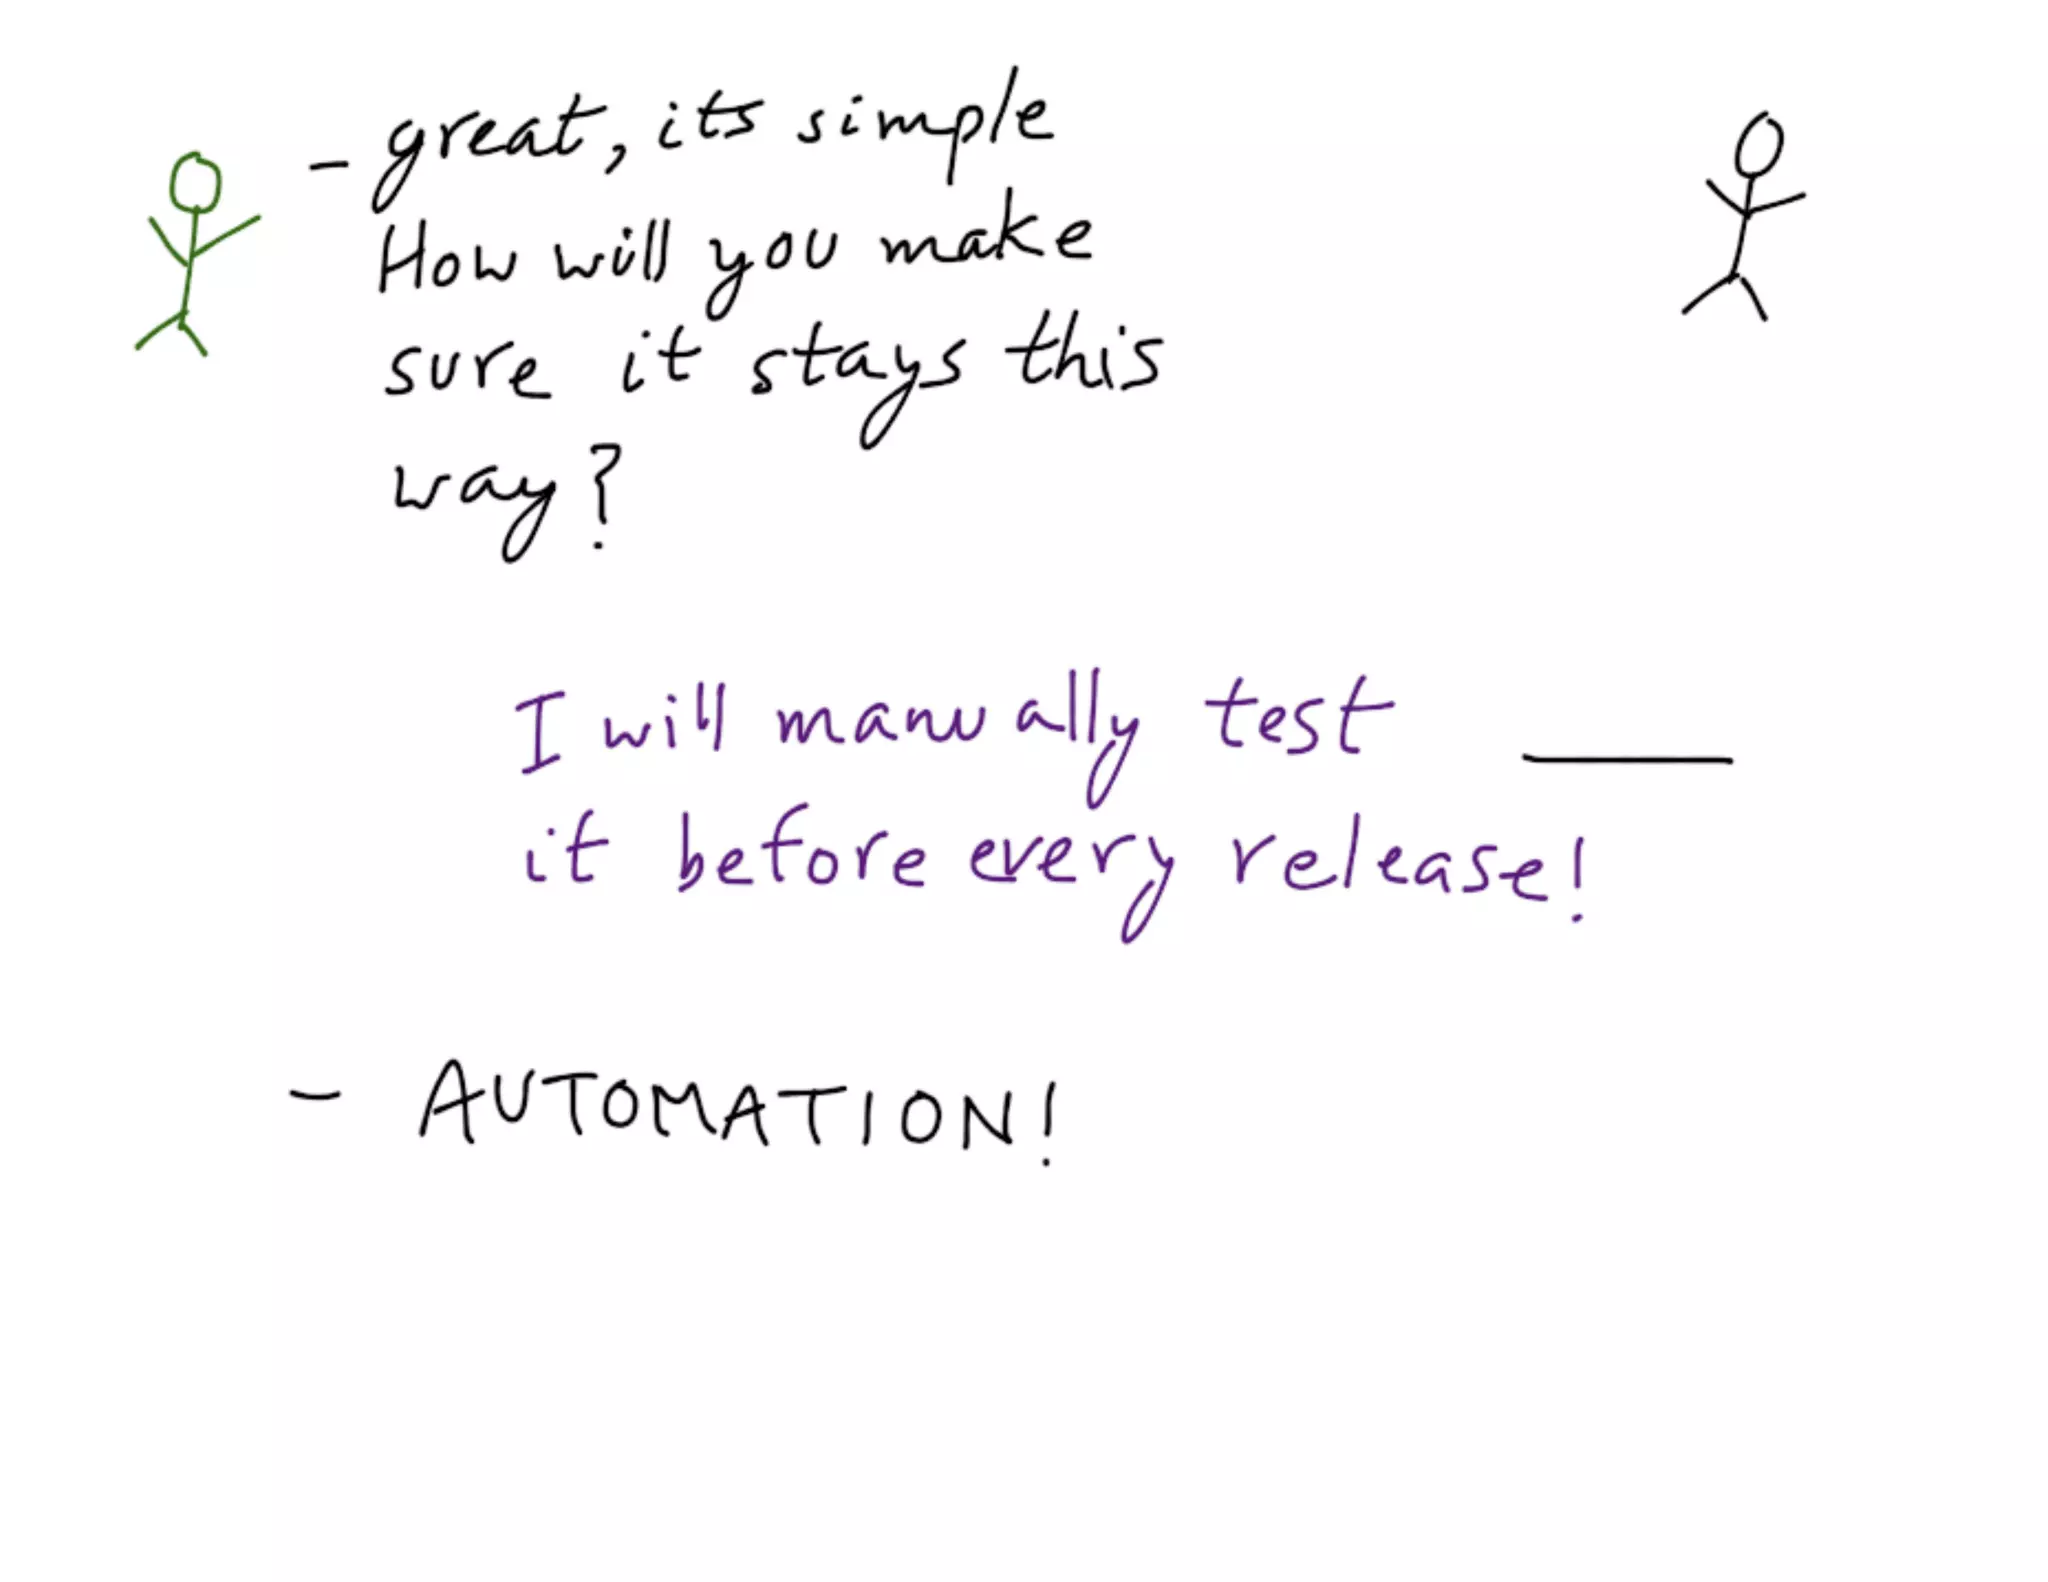 - great, its simple
How will you make
sure it stays this
way?
I will manually test
it before every release!
- AUTOMATION!